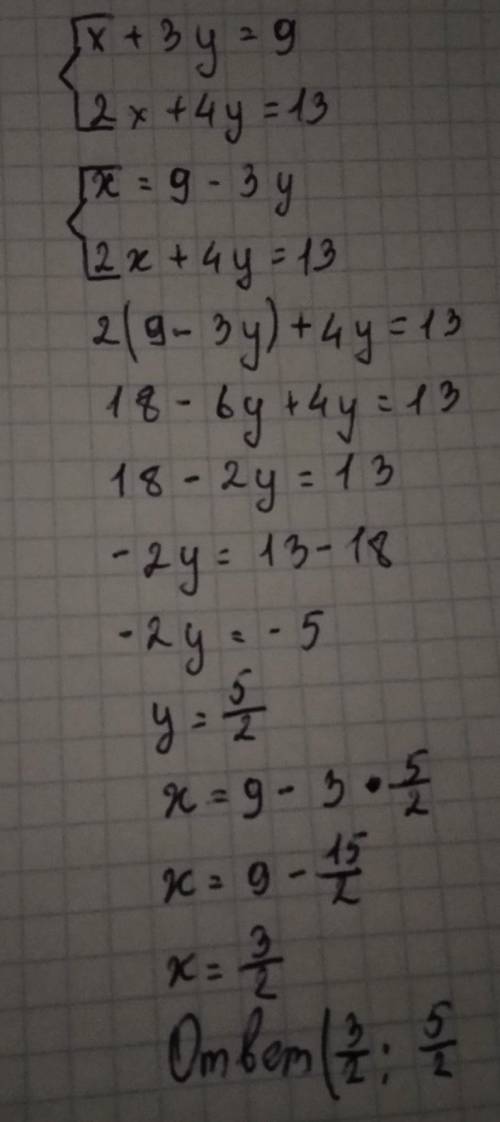 x + 3y = 9
2x + 4y = 13
x = 9 - 3y
2x + 4y = 13
2(9 - 3y) + 4y = 13
18 - 6y + 4y = 13
18 - 2y = 13
-2y = 13 - 18
-2y = -5
y = 5/2
x = 9 - 3 • 5/2
x = 9 - 15/2
x = 3/2
Ответ (3/2; 5/2